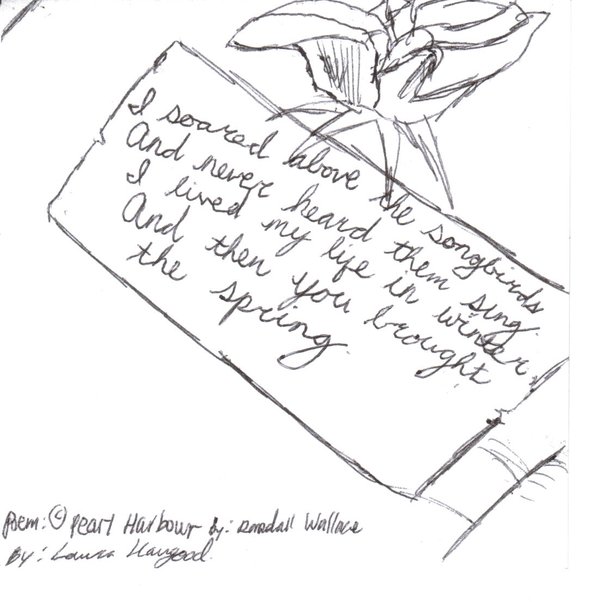 I soared above the songbirds
And never heard them sing.
I lived my life in winter,
And then you brought
the spring.
Poem: © Pearl Harbour By: Randall Wallace
By: Laura